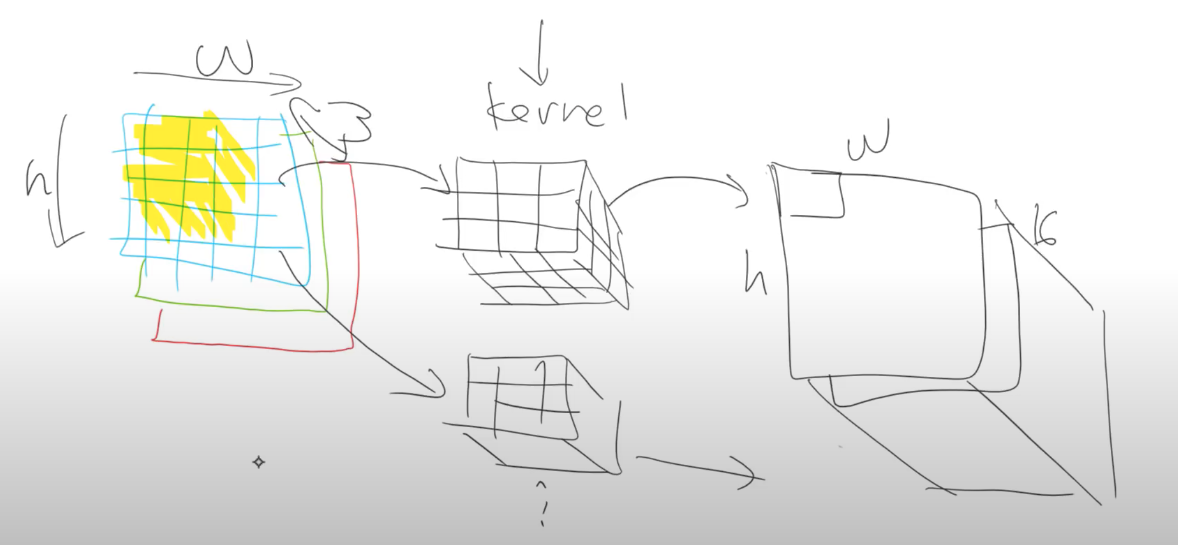 W
h
3
kernel
W
h
16